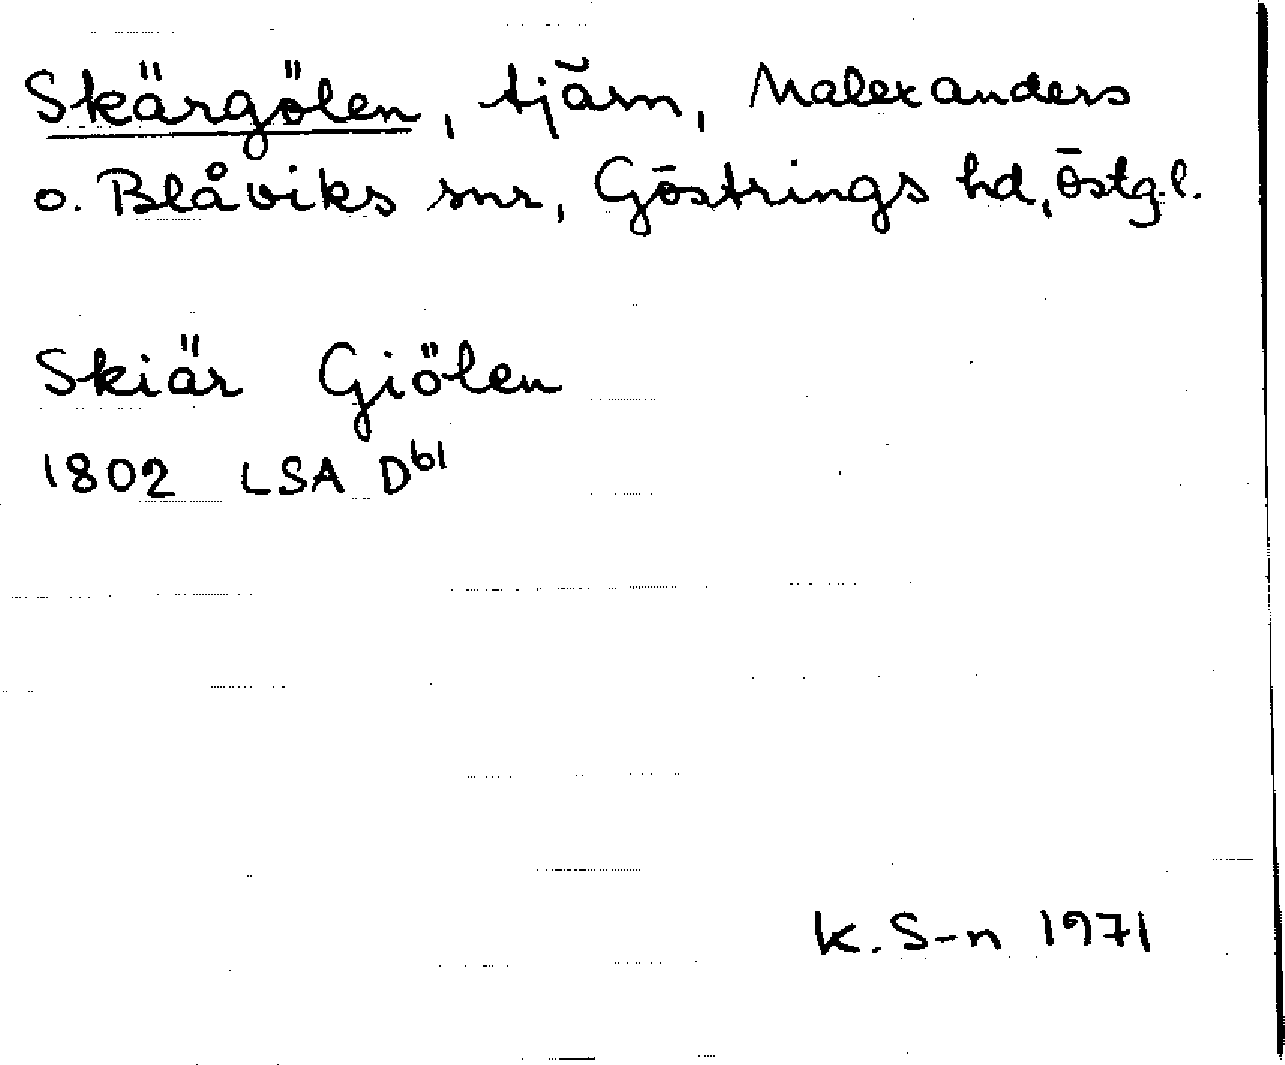 Skärgölen, tjärn, Malexanders
o. Blåviks snr, Göstrings hd, Östg.l.
Skiär Giölen
1802 LSA D61
K. S-n 1971